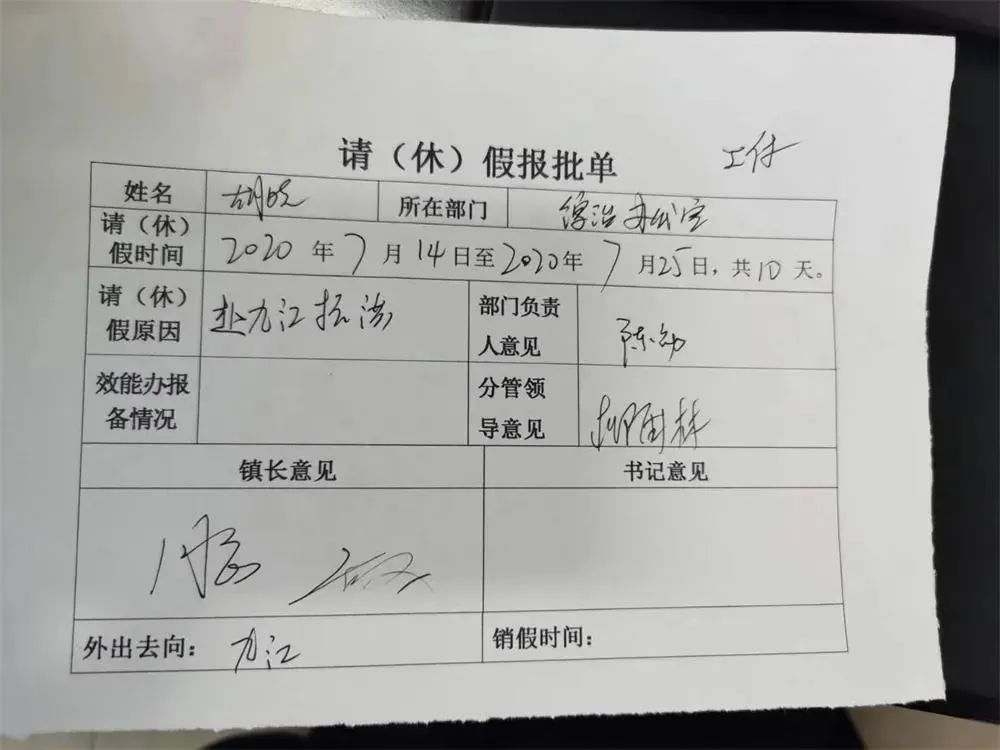 请（休）假报批单
工休
姓名 胡晓 所在部门 综治办公室
请（休）假时间 2020年7月14日至2020年7月25日，共10天。
请（休）假原因 赴九江抗洪 部门负责人意见
效能办报备情况 分管领导意见
镇长意见 书记意见
外出去向：九江 销假时间：